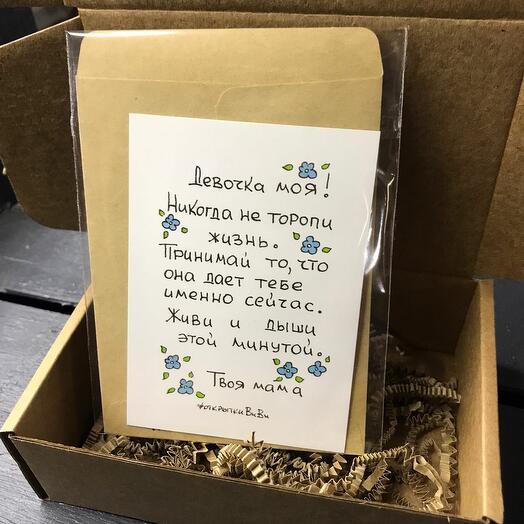 Девочка моя!
Никогда не торопи
жизнь.
Принимай то, что
она дает тебе
именно сейчас.
Живи и дыши
этой минутой.
Твоя мама
#открыткиВиВи